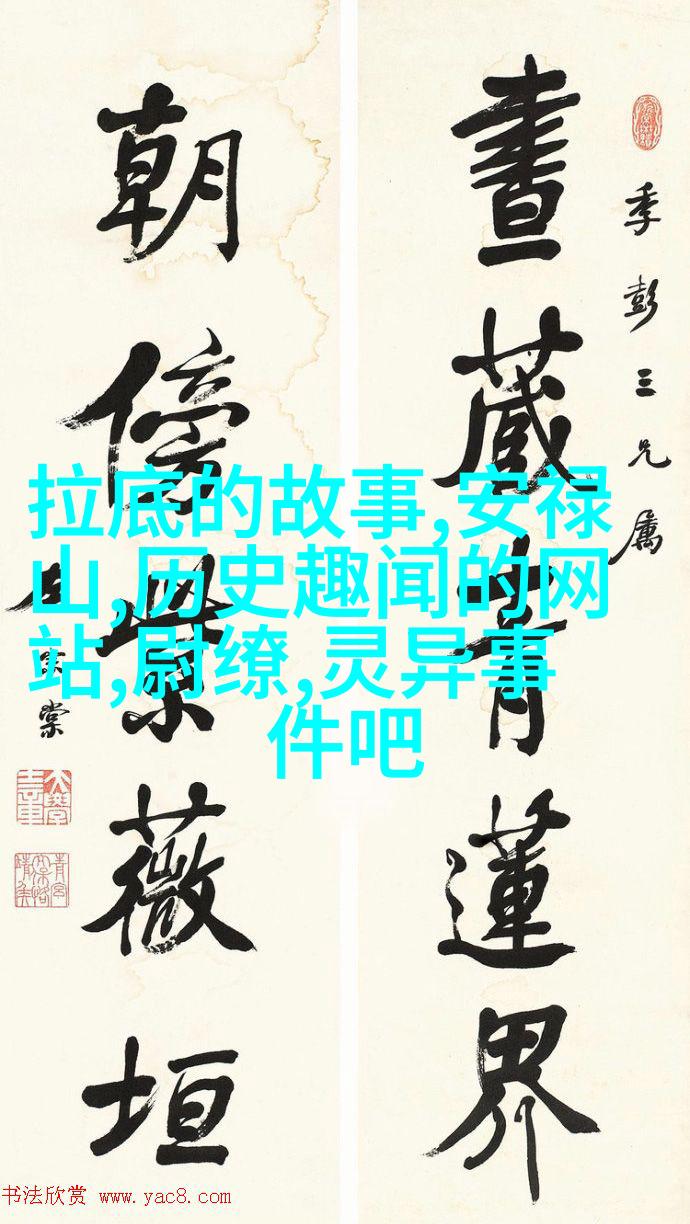 拉底的故事,安禄
山,历史趣闻的网
站,尉缭,灵异事
件吧
季彭三兄属
書藏青蓮界
朝傍紫薇垣
书法欣赏 www.yac8.com